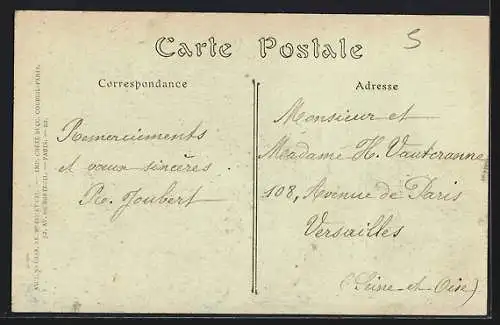 Carte Postale
5
Correspondance
Remerciements
et vœux sincères.
Joubert
Adresse
Monsieur et
Madame H. Vautcranne
108, Avenue de Paris
Versailles
(Seine-et-Oise)